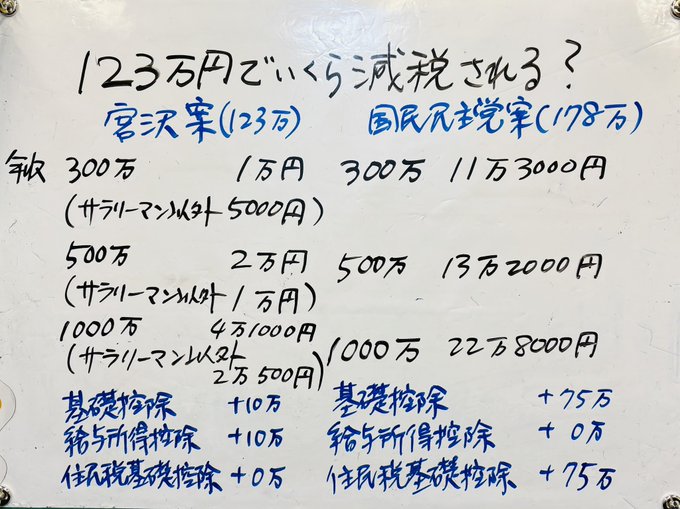 123万円でいくら減税される?
宮沢案(123万) 国民民主党案(178万)
年収 300万 1万円 300万 11万3000円
(サラリーマン以外 5000円)
500万 2万円 500万 13万2000円
(サラリーマン以外 1万円)
1000万 4万1000円 1000万 22万8000円
(サラリーマン以外
2万500円)
基礎控除 +10万 基礎控除 +75万
給与所得控除 +10万 給与所得控除 +0万
住民税基礎控除 +0万 住民税基礎控除 +75万